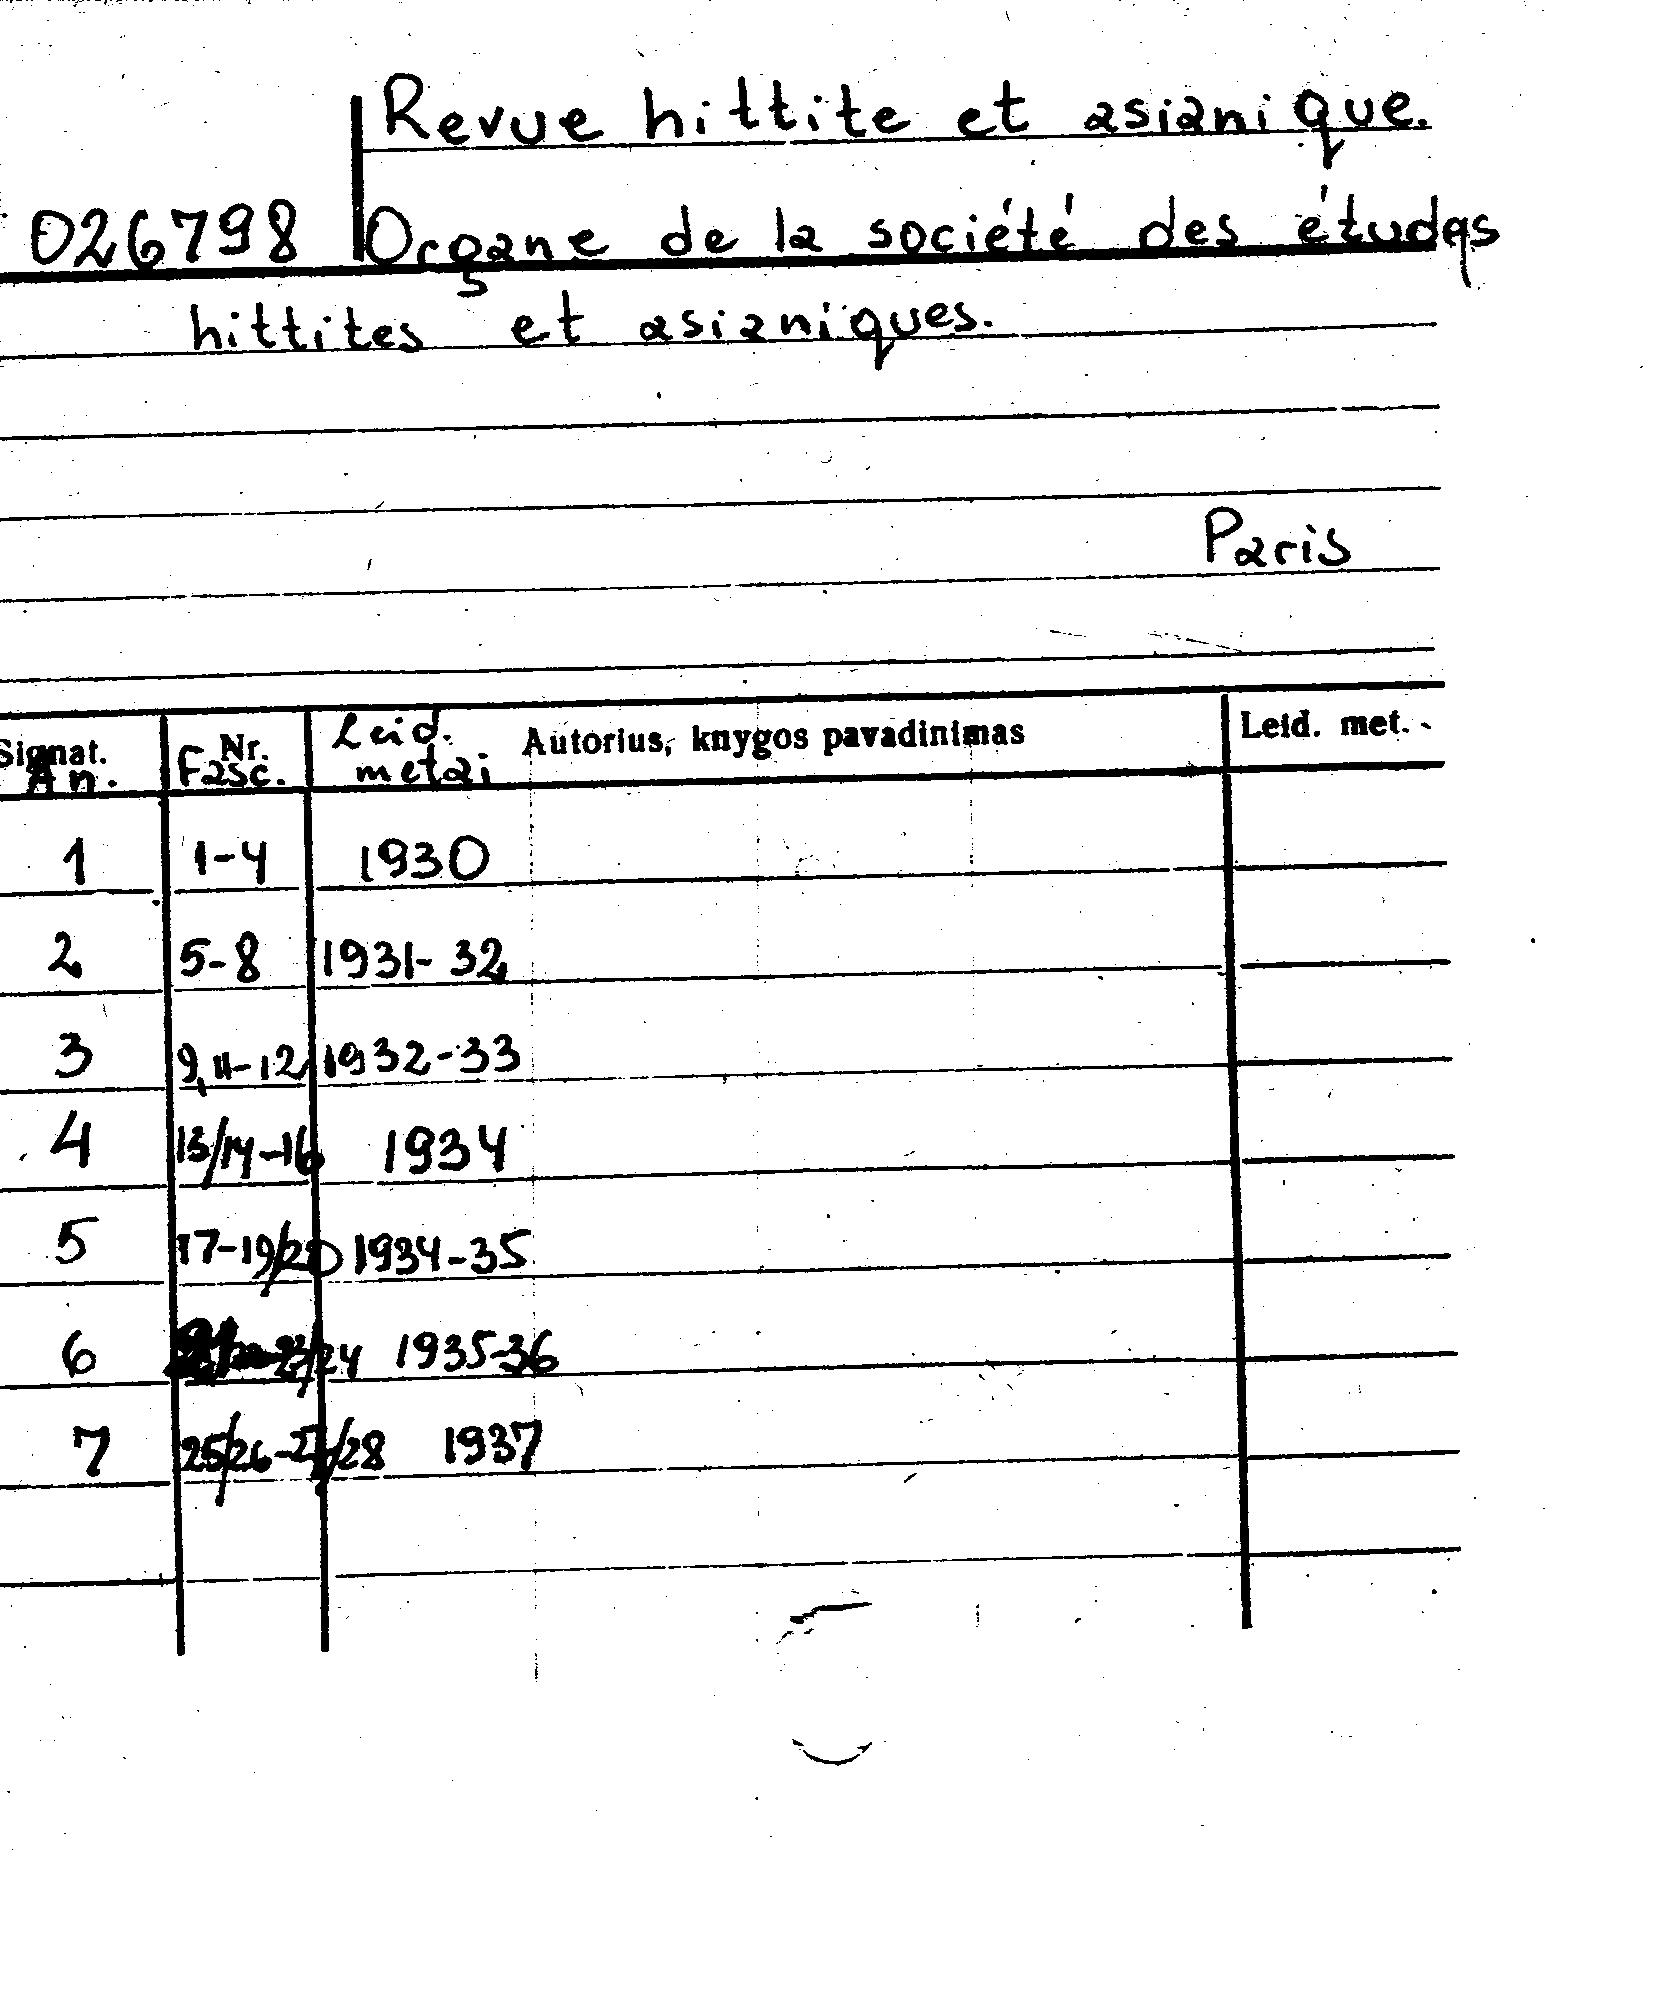 Revue hittite et asianique.
026798 Organe de la société des études
hittites et asianiques.
Paris
Signat. Nr. Leid. Autorius, knygos pavadinimas Leid. met.
An. Fasc. metai
1 1-4 1930
2 5-8 1931-32
3 9,11-12 1932-33
4 13/14-16 1934
5 17-19/20 1934-35
6 23/24 1935-36
7 25/26-27/28 1937